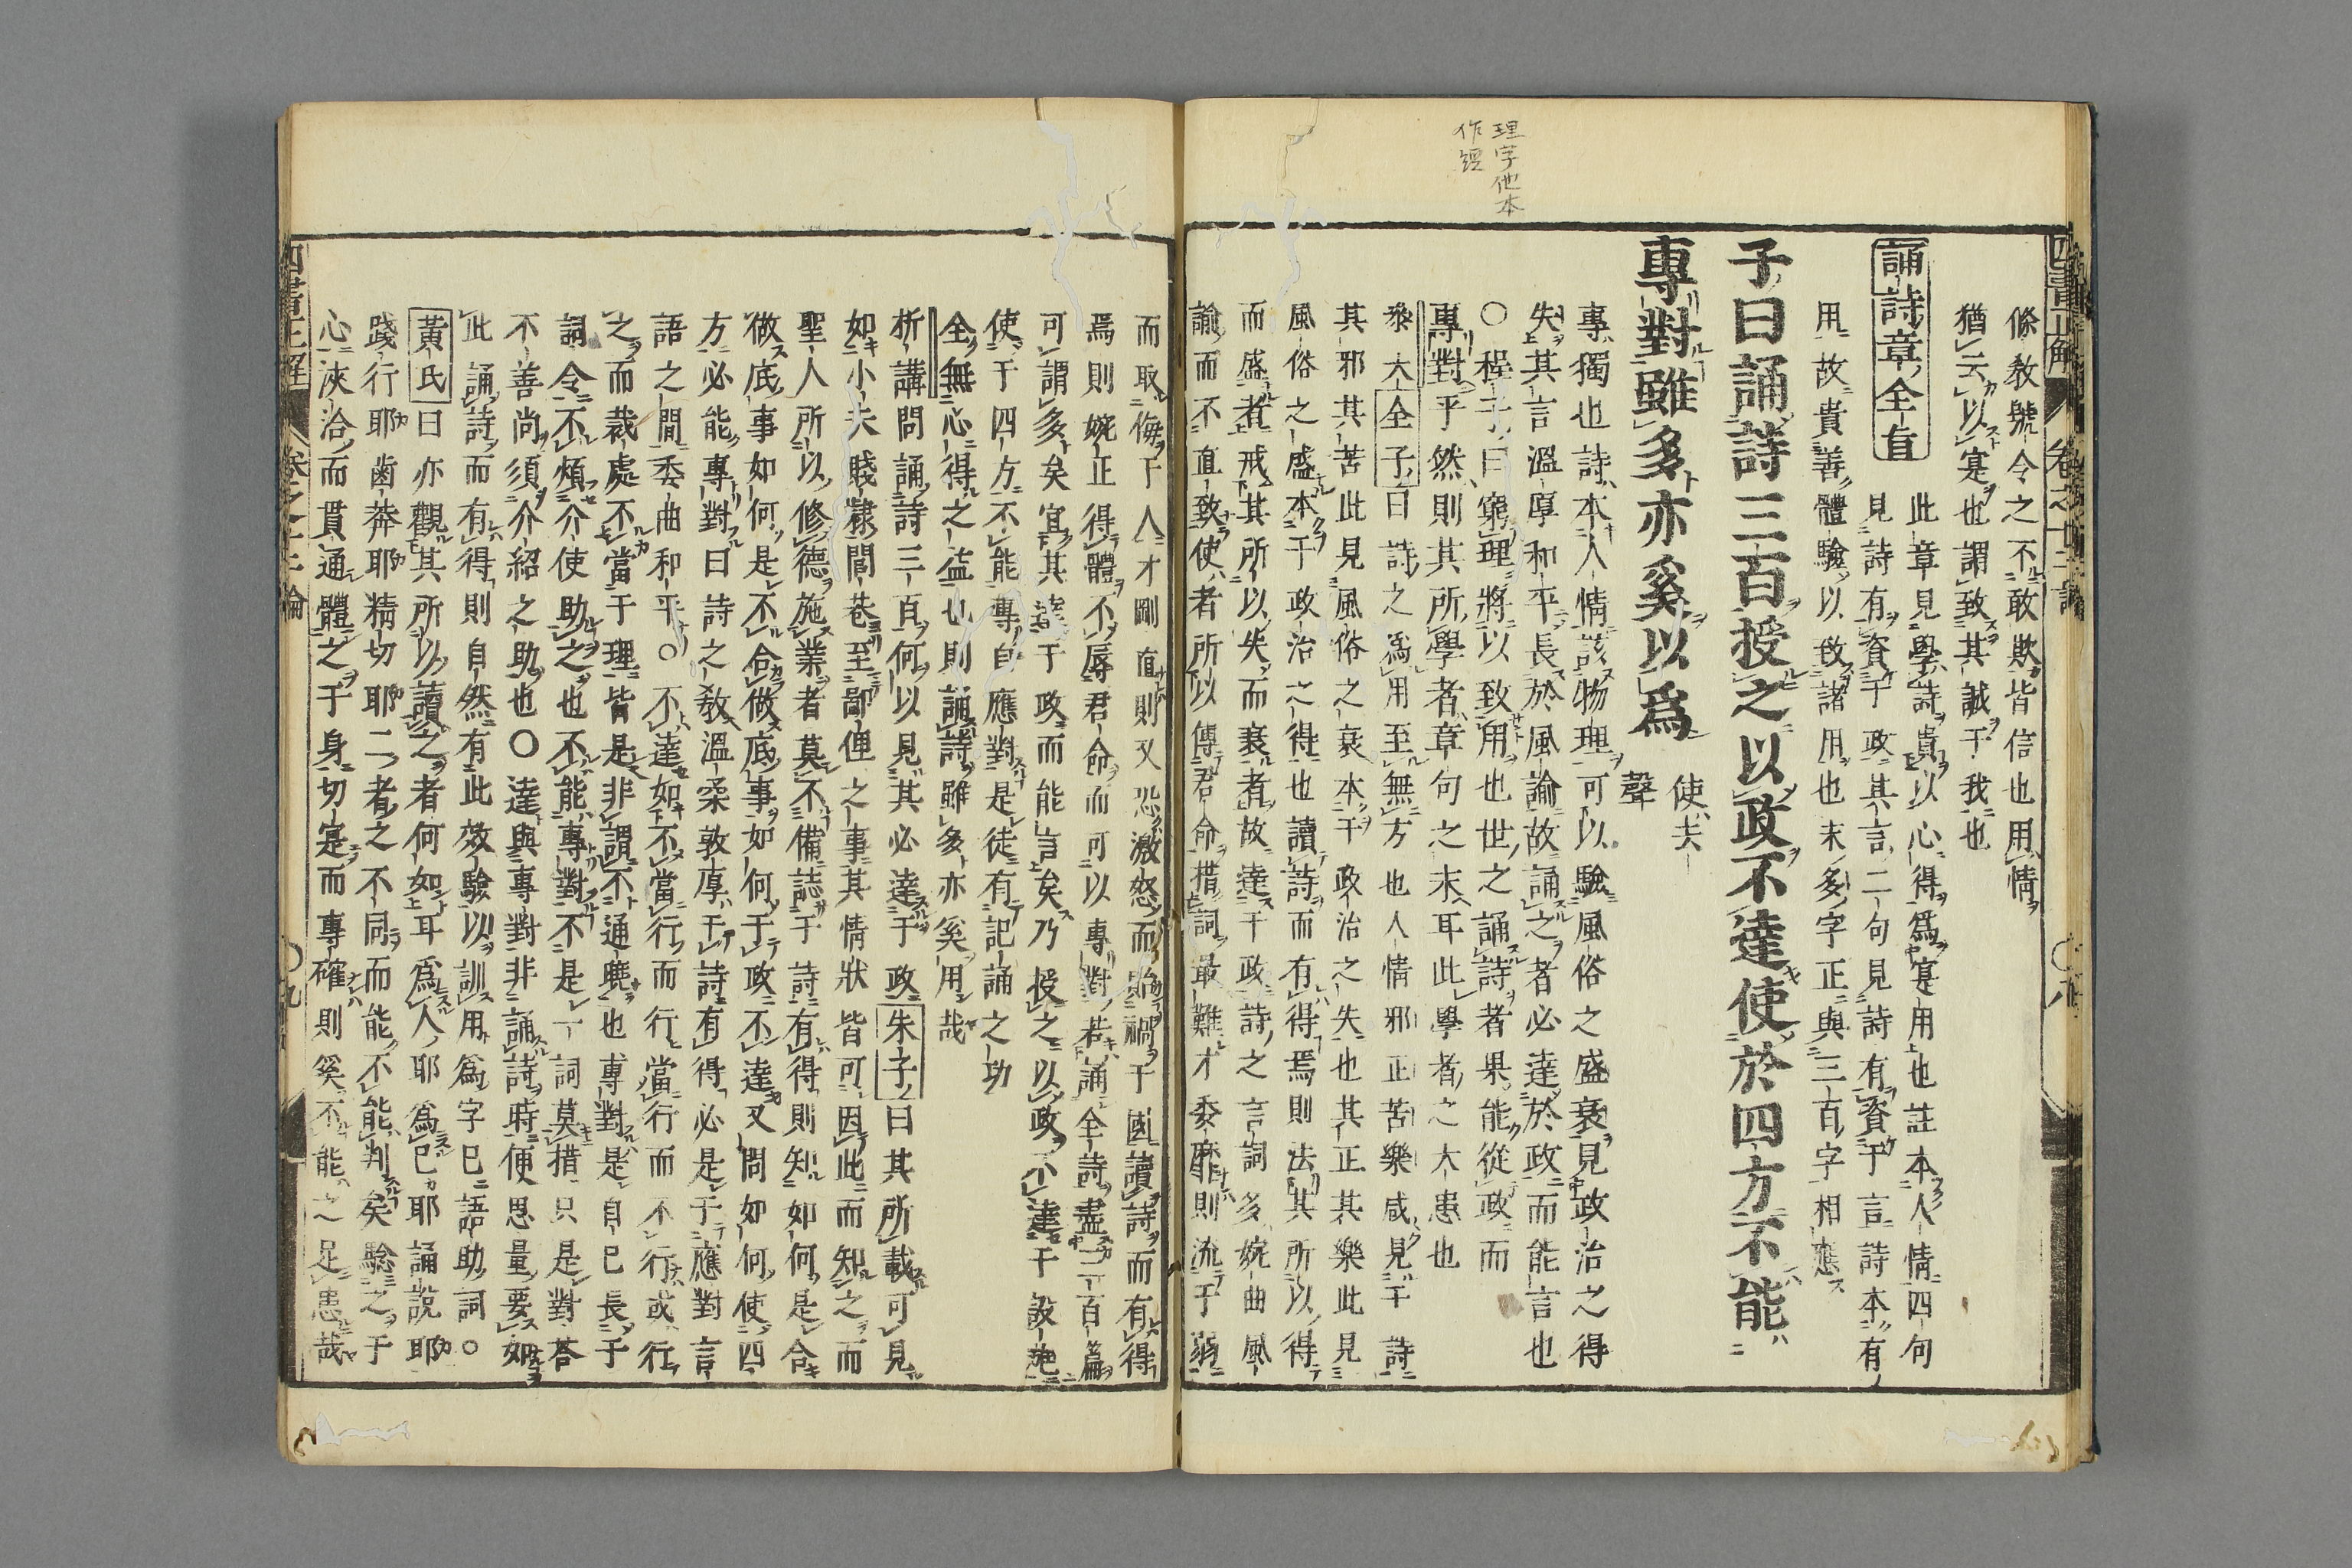 理字他本
作經
條教號令之不敢欺皆信也用情
猶云以寔也謂致其誠于我也
誦詩章全旨
此章見學詩貴以心得爲寔用也註本人情四句
見詩有資于政其言二句見詩有資于言詩本有
用故貴善體驗以致諸用也末多字正與三百字相應
子曰誦詩三百授之以政不達使於四方不能
專對雖多亦奚以爲
使去
聲
專獨也詩本人情該物理可以驗風俗之盛衰見政治之得
失其言溫厚和平長於風諭故誦之者必達於政而能言也
○程子曰窮理將以致用也世之誦詩者果能從政而
專對乎然則其所學者章句之末耳此學者之大患也
叅大全子曰詩之爲用至無方也人情邪正苦樂咸見于詩
其邪其苦此見風俗之衰本于政治之失也其正其樂此見
風俗之盛本于政治之得也讀詩而有得焉則法其所以得
而盛者戒其所以失而衰者故達于政詩之言詞多婉曲風
諭而不直致使者所以傳君命措詞最難才委靡則流于弱
四書正解
卷之
○八
而取侮于人才剛直則又恐激怒而貽禍于國讀詩而有得
焉則婉正得體不辱君命而可以專對若誦全詩盡三百篇
可謂多矣宜其達于政而能言矣乃授之以政不達于設施
使于四方不能專自應對是徒有記誦之功
全無心得之益也則誦詩雖多亦奚用哉
析講問誦詩三百何以見其必達于政朱子曰其所載可見
如小夫賤隸閭巷至鄙俚之事其情狀皆可因此而知之而
聖人所以修德施業者莫不備誌于詩有得則知如何是合
做底事如何是不合做底事如何于政不達又問如何使四
方必能專對曰詩之教溫柔敦厚于詩有得必是于應對言
語之間委曲和平○不達如不當行而行當行而不行或行
之而裁處不當于理皆是非謂不通曉也專對是自己長于
詞令不煩介使助之也不能專對不是一詞莫措只是對荅
不善尚須介紹之助也○達與專對非誦詩時便思量要如
此誦詩而有得則自然有此效驗以訓用爲字已語助詞○
黃氏曰亦觀其所以讀之者何如耳爲人耶爲己耶誦說耶
踐行耶鹵莽耶精切耶二者之不同而能不能判矣驗之于
心浹洽而貫通體之于身切寔而專確則奚不能之足患哉
四書正解
卷之十三論
○九